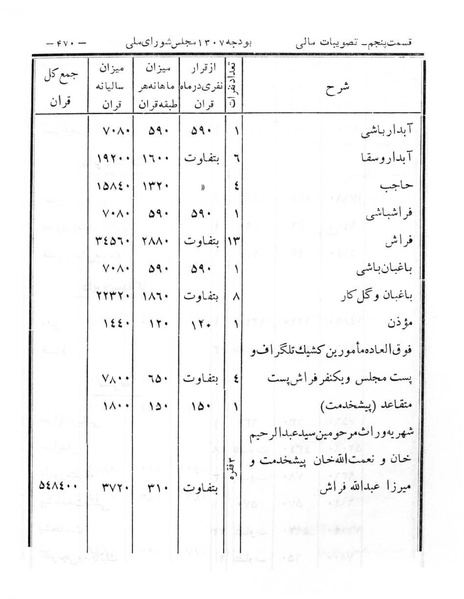 قسمت پنجم – تصویبات مالی بودجه ۱۳۰۷ مجلس شورای ملی – ٤٧٠ –
شرح تعداد نفرات از قرار نفری در ماه قران میزان ماهانه هر طبقه قران میزان سالیانه قران جمع کل قران
آبدارباشی ۱ ۵۹۰ ۵۹۰ ۷۰۸۰
آبدار و سقا ٦ بتفاوت ۱٦۰۰ ۱۹۲۰۰
حاجب ٤ « ۱۳۲۰ ۱۵۸٤۰
فراشباشی ۱ ۵۹۰ ۵۹۰ ۷۰۸۰
فراش ۱۳ بتفاوت ۲۸۸۰ ۳٤۵٦۰
باغبان باشی ۱ ۵۹۰ ۵۹۰ ۷۰۸۰
باغبان و گل کار ۸ بتفاوت ۱۸٦۰ ۲۲۳۲۰
مؤذن ۱ ۱۲۰ ۱۲۰ ۱٤٤۰
فوق العاده مأمورین کشیك تلگراف و
پست مجلس و یکنفر فراش پست ٤ بتفاوت ٦۵۰ ۷۸۰۰
متقاعد (پیشخدمت) ۱ ۱۵۰ ۱۵۰ ۱۸۰۰
شهریه وراث مرحومین سید عبدالرحیم
خان و نعمت الله خان پیشخدمت و
میرزا عبدالله فراش ۳ فقره بتفاوت ۳۱۰ ۳۷۲۰ ۵٤۸٤۰۰